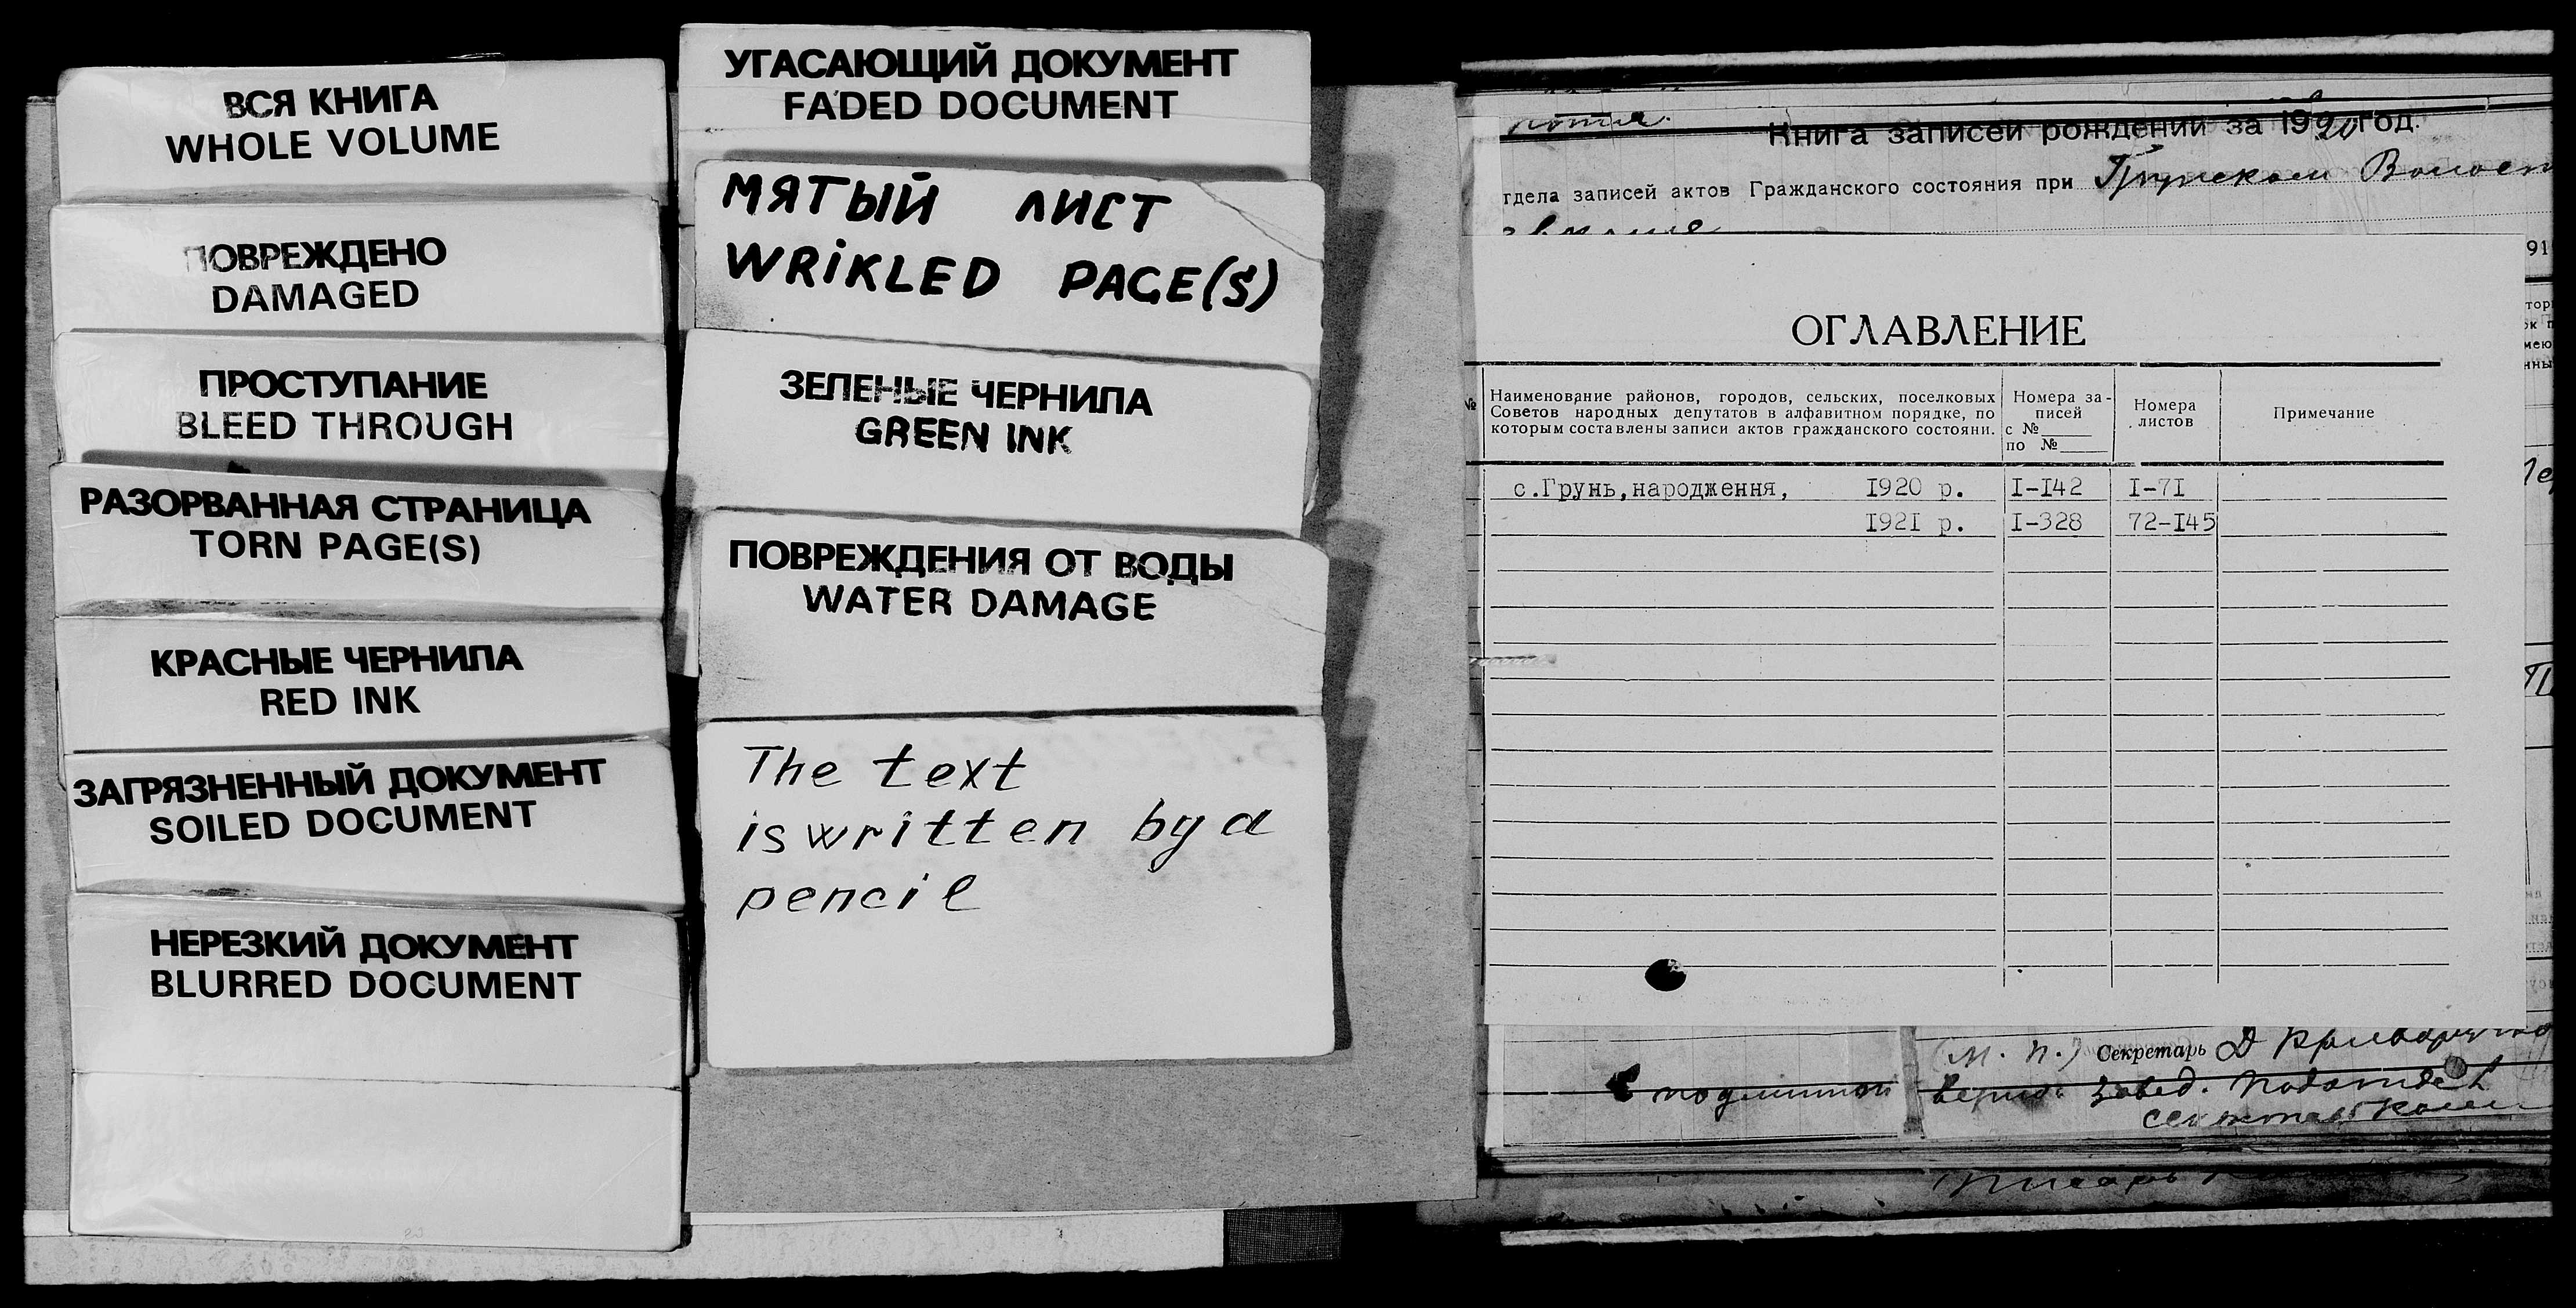 ВСЯ КНИГА
WHOLE VOLUME
ПОВРЕЖДЕНО
DAMAGED
ПРОСТУПАНИЕ
BLEED THROUGH
РАЗОРВАННАЯ СТРАНИЦА
TORN PAGE(S)
КРАСНЫЕ ЧЕРНИЛА
RED INK
ЗАГРЯЗНЕННЫЙ ДОКУМЕНТ
SOILED DOCUMENT
НЕРЕЗКИЙ ДОКУМЕНТ
BLURRED DOCUMENT
УГАСАЮЩИЙ ДОКУМЕНТ
FADED DOCUMENT
МЯТЫЙ ЛИСТ
WRIKLED PAGE(S)
ЗЕЛЕНЫЕ ЧЕРНИЛА
GREEN INK
ПОВРЕЖДЕНИЯ ОТ ВОДЫ
WATER DAMAGE
The text
is written by a
pencil
Книга записей рождений за 1920 год.
тдела записей актов Гражданского состояния при
ОГЛАВЛЕНИЕ
№
Наименование районов, городов, сельских, поселковых
Советов народных депутатов в алфавитном порядке, по
которым составлены записи актов гражданского состояни.
Номера за-
писей
с №
по №
Номера
листов
Примечание
с.Грунь, народження, 1920 р. I-142 I-71
1921 р. I-328 72-145
(М. П.) Секретарь